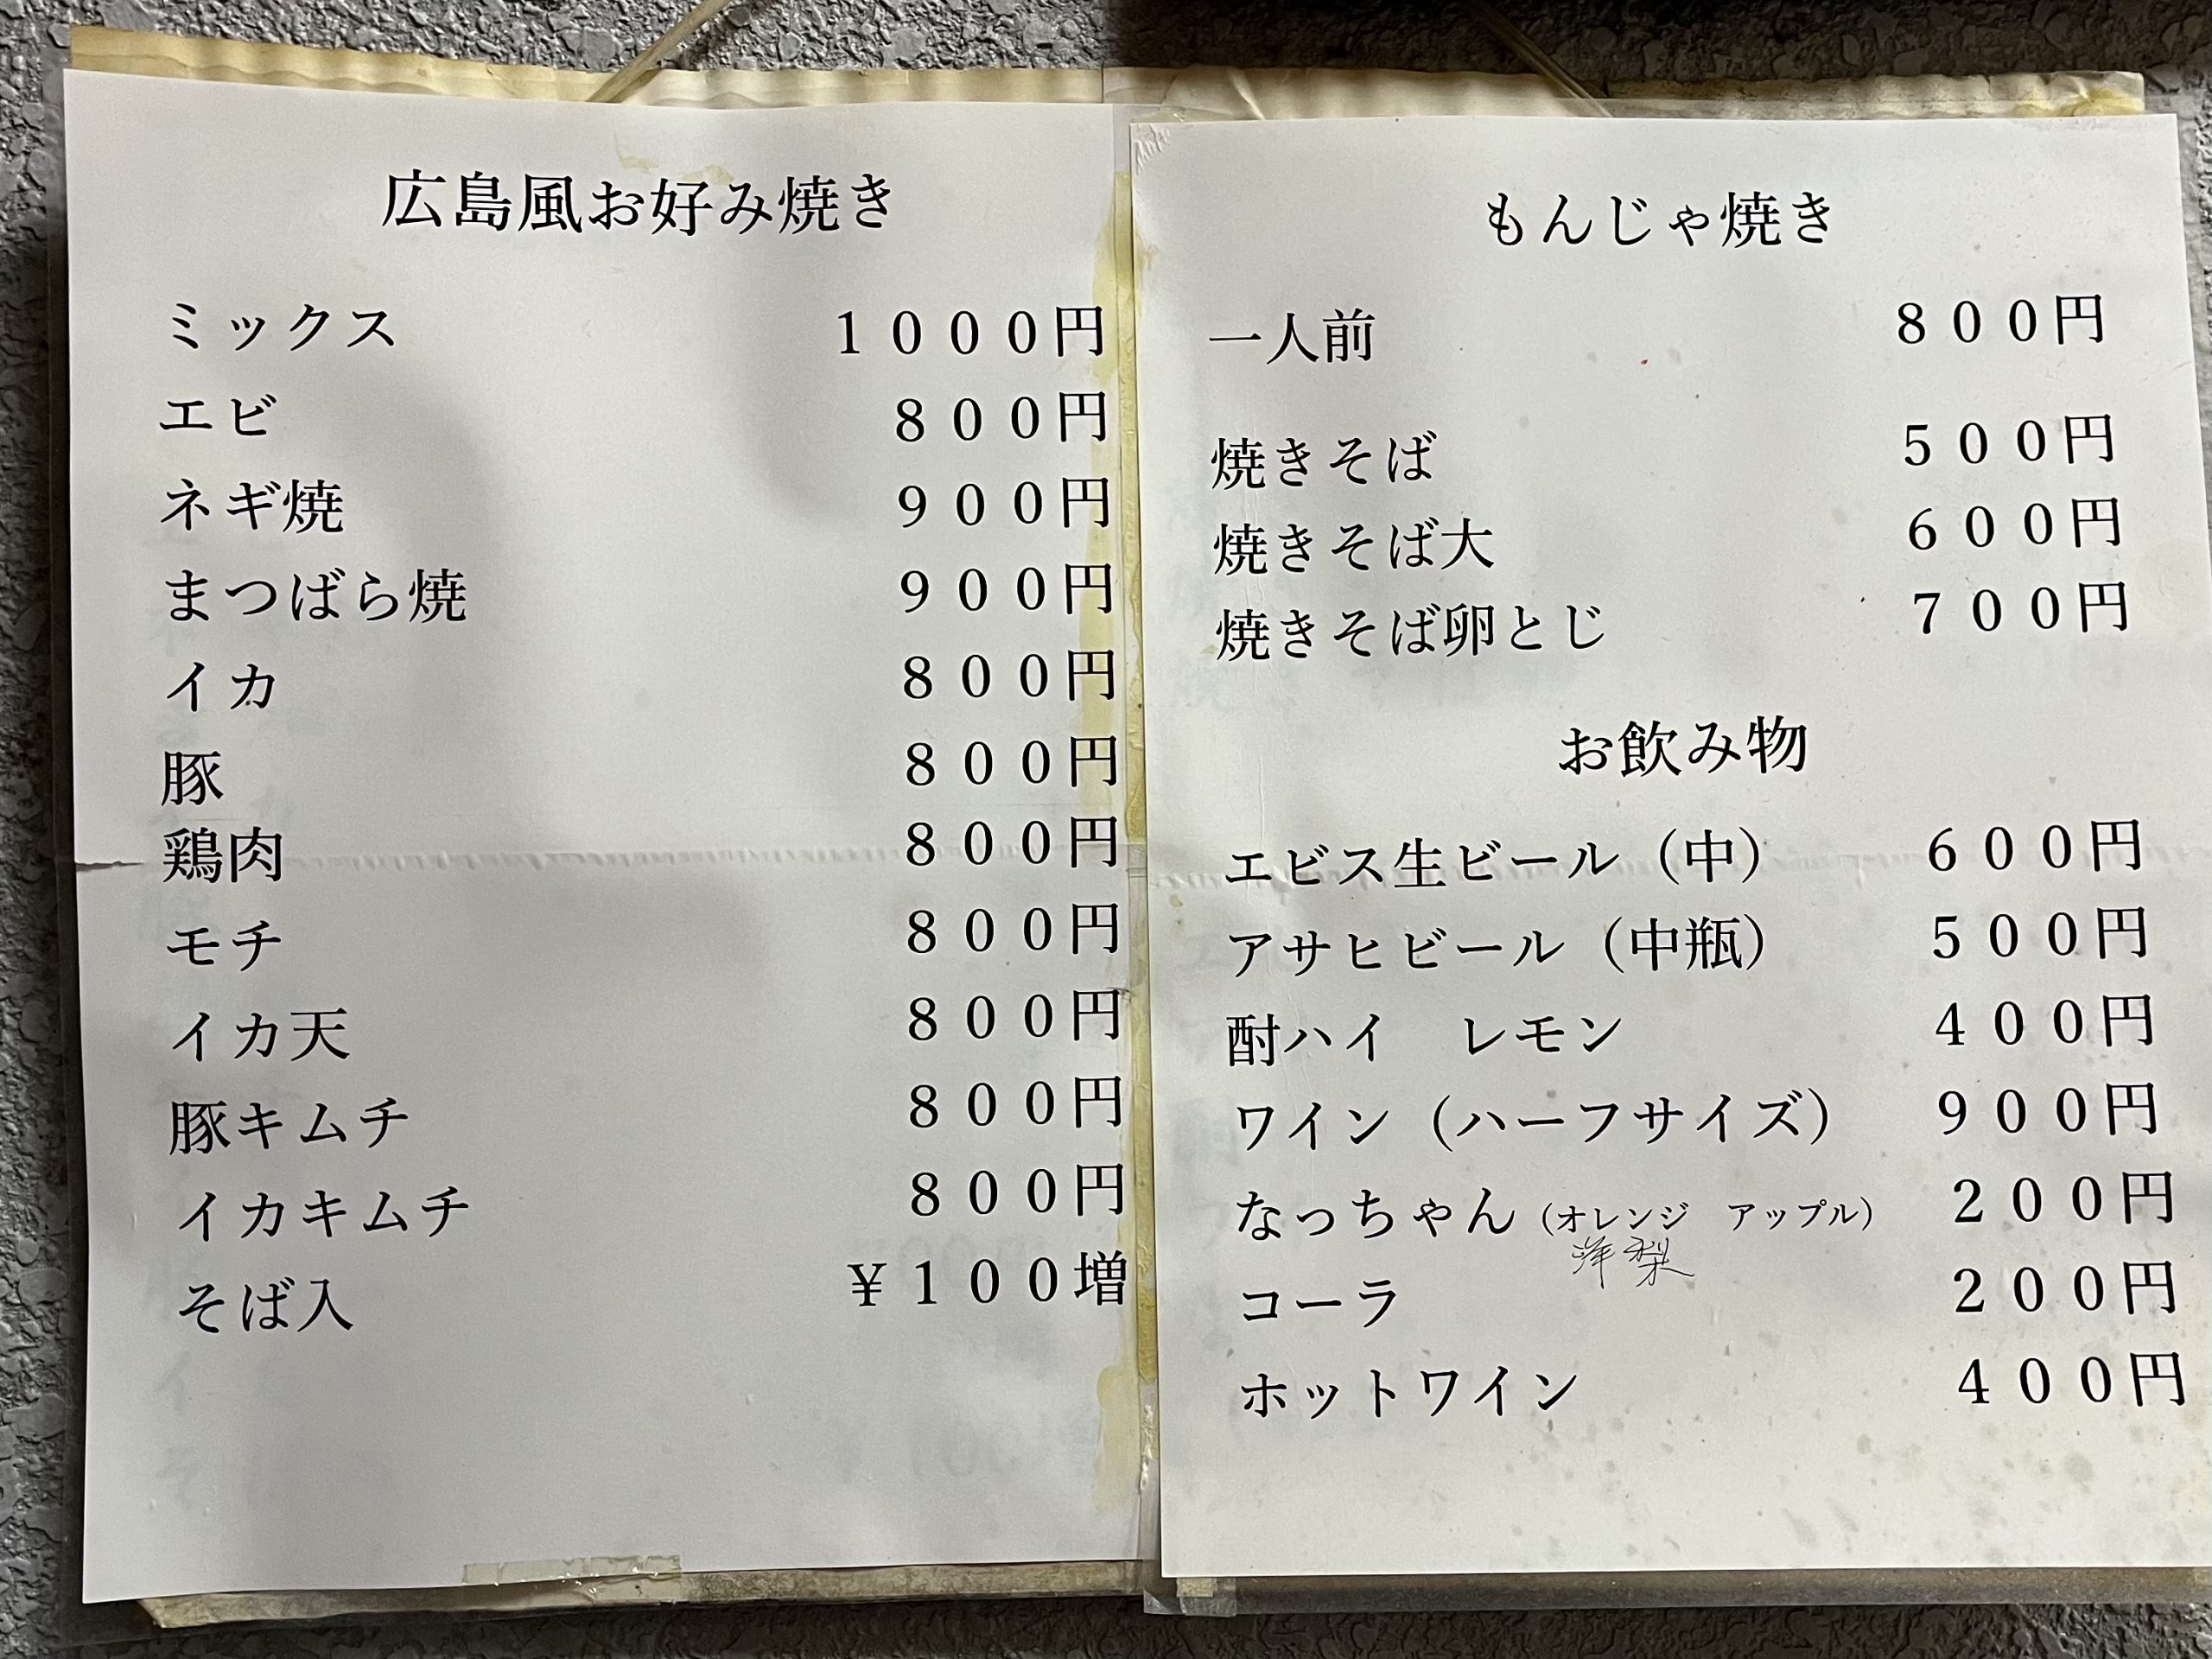 広島風お好み焼き
ミックス 1000円
エビ 800円
ネギ焼 900円
まつばら焼 900円
イカ 800円
豚 800円
鶏肉 800円
モチ 800円
イカ天 800円
豚キムチ 800円
イカキムチ 800円
そば入 ¥100増
もんじゃ焼き
一人前 800円
焼きそば 500円
焼きそば大 600円
焼きそば卵とじ 700円
お飲み物
エビス生ビール（中） 600円
アサヒビール（中瓶） 500円
酎ハイ　レモン 400円
ワイン（ハーフサイズ） 900円
なっちゃん（オレンジ　アップル） 200円
洋梨
コーラ 200円
ホットワイン 400円